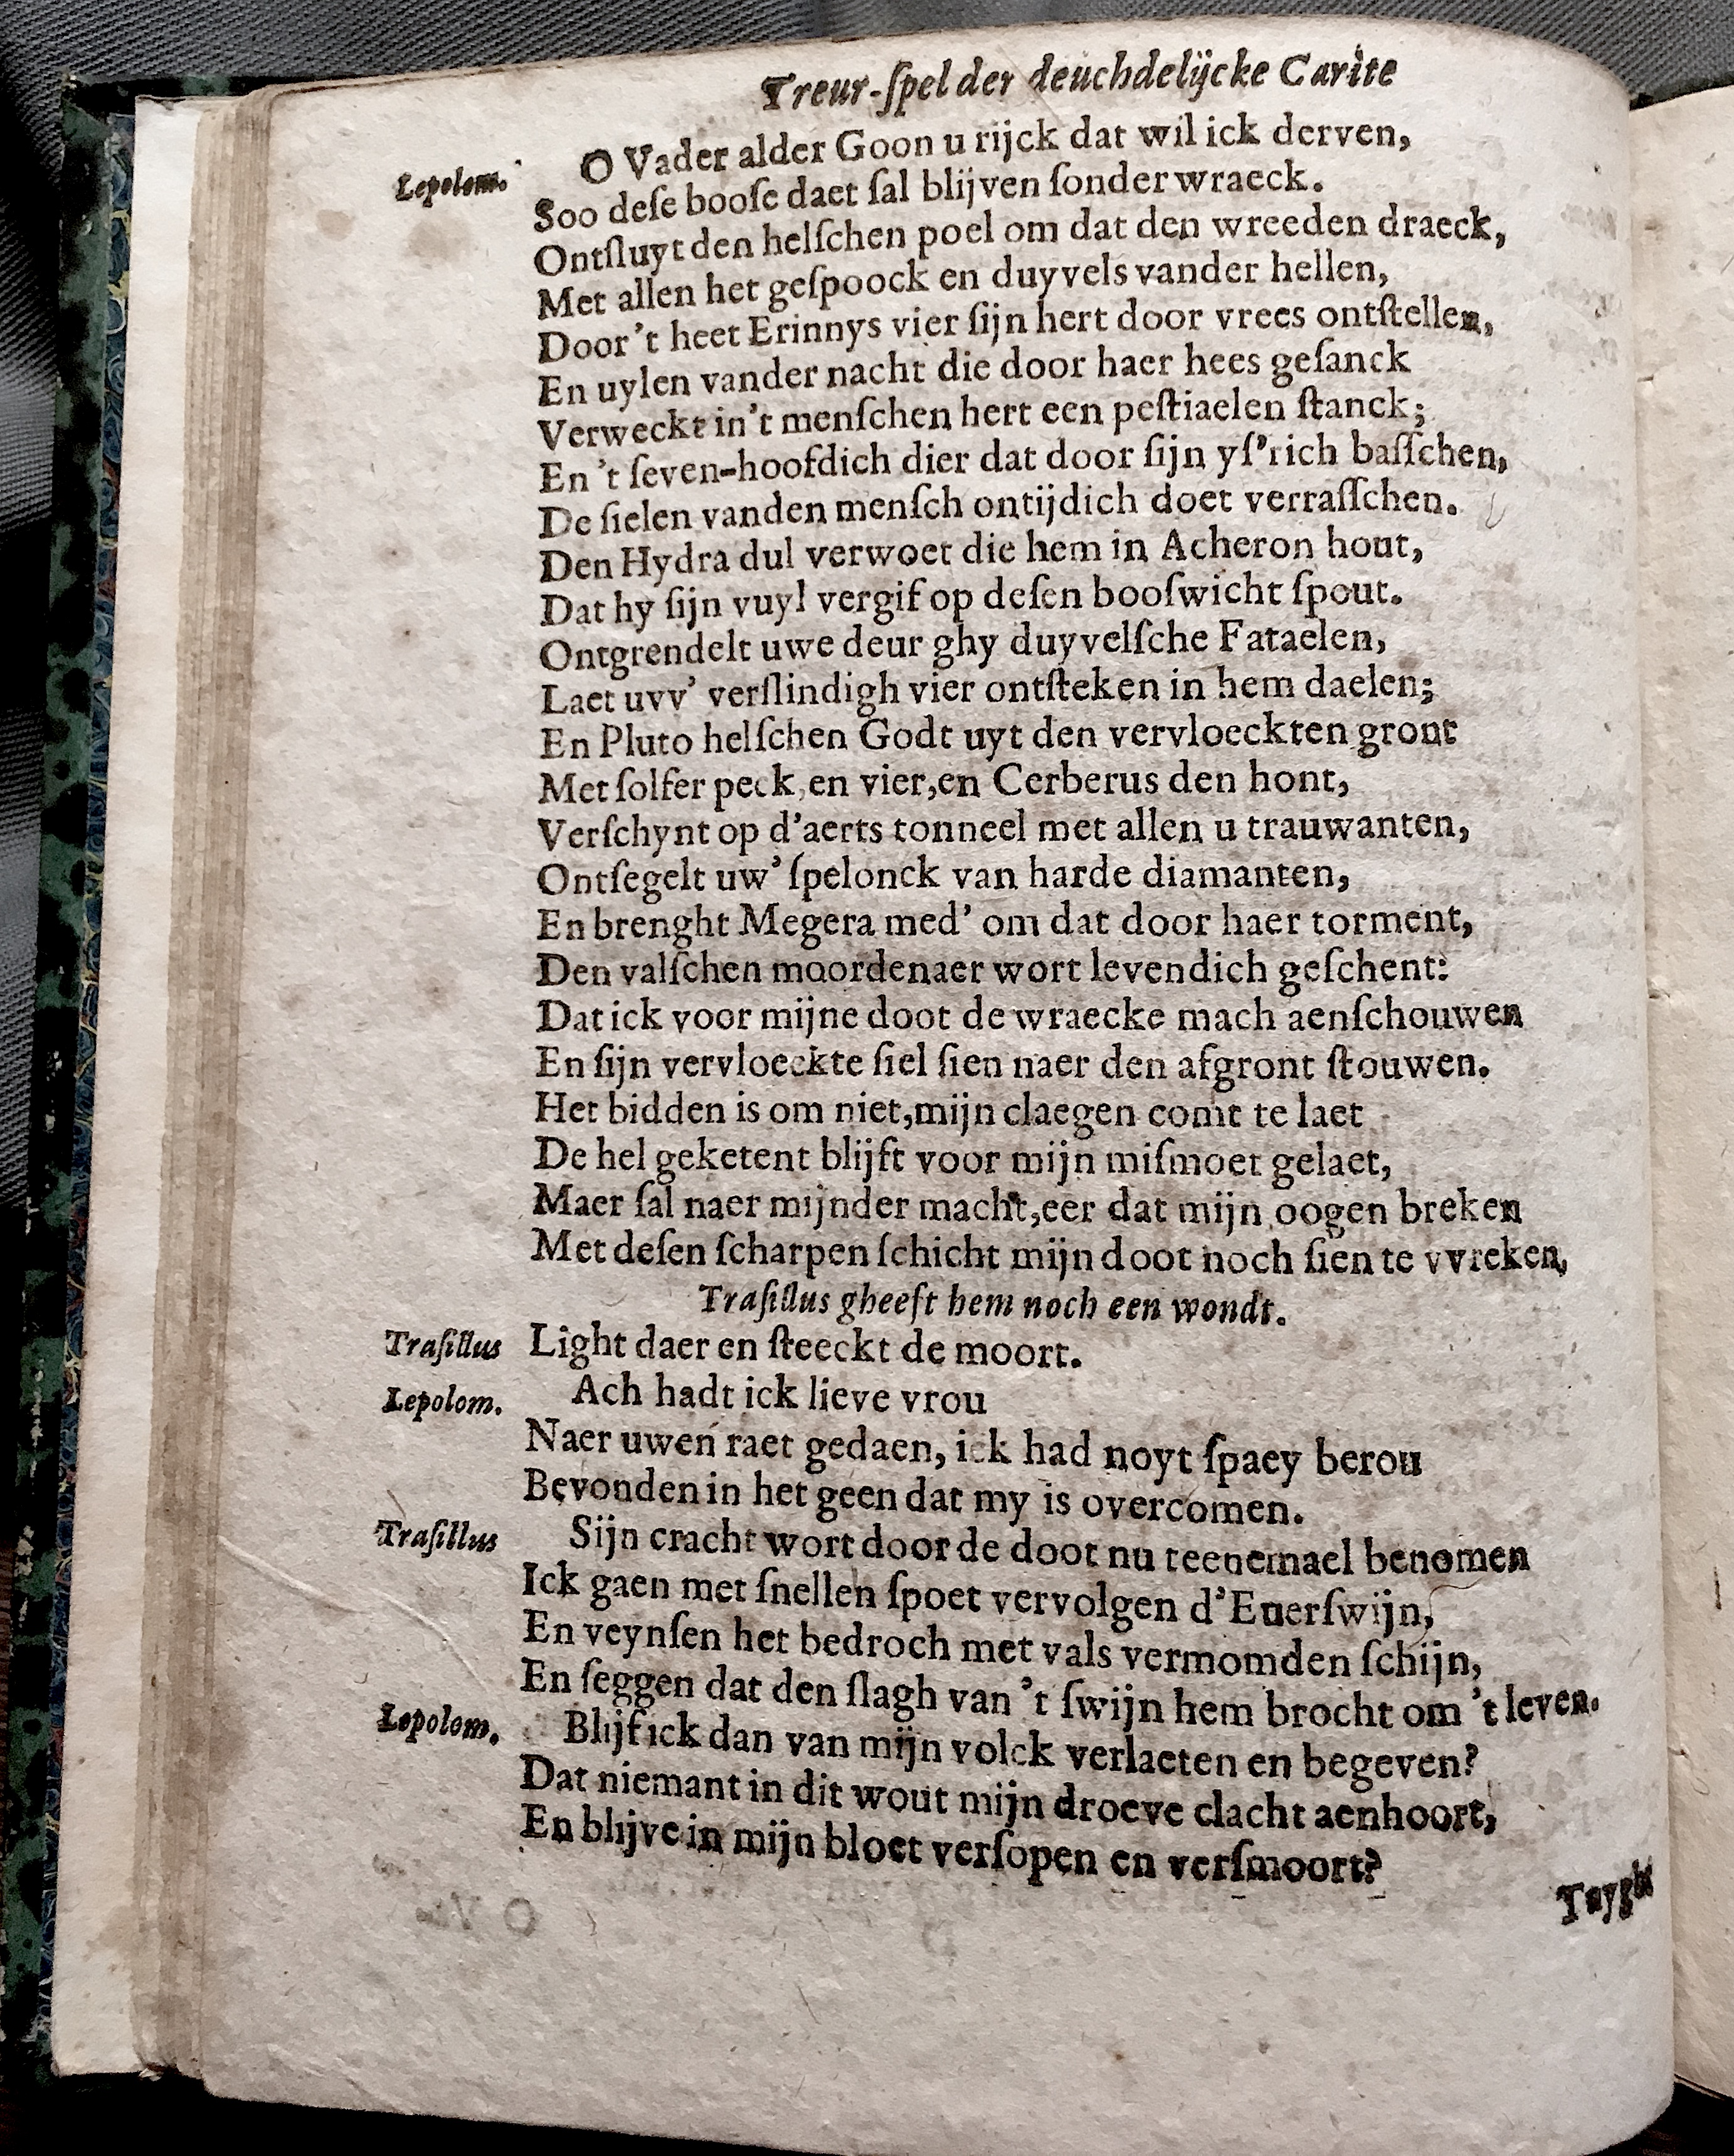 Treur-ſpel der deuchdelijcke Carite
Lepolom. O Vader alder Goon u rijck dat wil ick derven,
Soo deſe booſe daet ſal blijven ſonder wraeck.
Ontſluyt den helſchen poel om dat den wreeden draeck,
Met allen het geſpoock en duyvels vander hellen,
Door 't heet Erinnys vier ſijn hert door vrees ontſtellen,
En uylen vander nacht die door haer hees geſanck
Verweckt in't menſchen hert een peſtiaelen ſtanck;
En 't ſeven-hoofdich dier dat door ſijn yſ'rich baſſchen,
De ſielen vanden menſch ontijdich doet verraſſchen.
Den Hydra dul verwoet die hem in Acheron hout,
Dat hy ſijn vuyl vergif op deſen booſwicht ſpout.
Ontgrendelt uwe deur ghy duyvelſche Fataelen,
Laet uvv' verſlindigh vier ontſteken in hem daelen;
En Pluto helſchen Godt uyt den vervloeckten gront
Met ſolfer peck, en vier,en Cerberus den hont,
Verſchynt op d'aerts tonneel met allen u trauwanten,
Ontſegelt uw' ſpelonck van harde diamanten,
En brenght Megera med' om dat door haer torment,
Den valſchen moordenaer wort levendich geſchent:
Dat ick voor mijne doot de wraecke mach aenſchouwen
En ſijn vervloeckte ſiel ſien naer den afgront ſtouwen.
Het bidden is om niet,mijn claegen comt te laet
De hel geketent blijft voor mijn miſmoet gelaet,
Maer ſal naer mijnder macht,eer dat mijn oogen breken
Met deſen ſcharpen ſchicht mijn doot noch ſien te vvreken,
Traſillus gheeft hem noch een wondt.
Traſillus Light daer en ſteeckt de moort.
Lepolom. Ach hadt ick lieve vrou
Naer uwen raet gedaen, ick had noyt ſpaey berou
Bevonden in het geen dat my is overcomen.
Traſillus Sijn cracht wort door de doot nu teenemael benomen
Ick gaen met ſnellen ſpoet vervolgen d'Euerſwijn,
En veynſen het bedroch met vals vermomden ſchijn,
En ſeggen dat den ſlagh van 't ſwijn hem brocht om 't leven.
Lepolom. Blijf ick dan van mijn volck verlaeten en begeven?
Dat niemant in dit wout mijn droeve clacht aenhoort,
En blijve in mijn bloet verſopen en verſmoort?
Tuyght